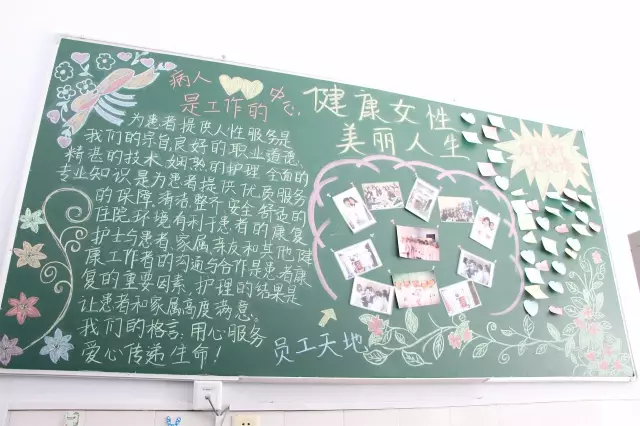 病人中心
是工作的
为患者提供人性服务是
我们的宗旨,良好的职业道德,
精湛的技术,娴熟的护理,全面的
专业知识,是为患者提供优质服务
的保障,清洁,整齐,安全,舒适的
住院环境有利于患者的康复
护士与患者,家属,亲友和其他健
康工作者的沟通与合作是患者康
复的重要因素,护理的结果是
让患者和家属高度满意。
我们的格言:用心服务
爱心传递生命!
健康女性
美丽人生
员工天地